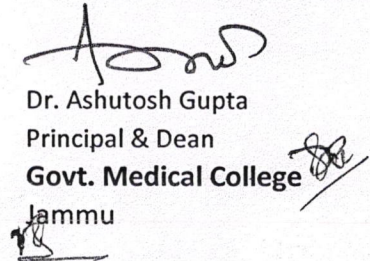 Dr. Ashutosh Gupta
Principal & Dean
Govt. Medical College
Jammu